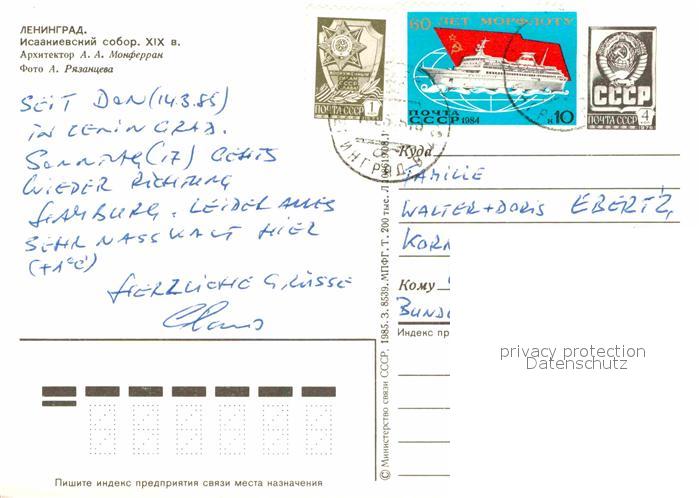 ЛЕНИНГРАД.
Исаакиевский собор. XIX в.
Архитектор А. А. Монферран
Фото А. Рязанцева
ПОЧТА СССР 1
60 ЛЕТ МОРФЛОТУ
ПОЧТА
СССР 1984
к 10
СССР
ПОЧТА СССР 4
1976
SEIT DON (14.3.85)
IN LENINGRAD.
SONNTAG (17) GEHTS
WIEDER RICHTUNG
HAMBURG. LEIDER ALLES
SEHR NASSKALT HIER
(+1°C)
HERZLICHE GRÜSSE
Claus
Куда
FAMILIE
WALTER + DORIS EBERTZ,
KORN
Кому
BUND
Индекс пр
privacy protection
Datenschutz
© Министерство связи СССР. 1985. З. 8539. МПФГ. Т. 200 тыс.
Пишите индекс предприятия связи места назначения